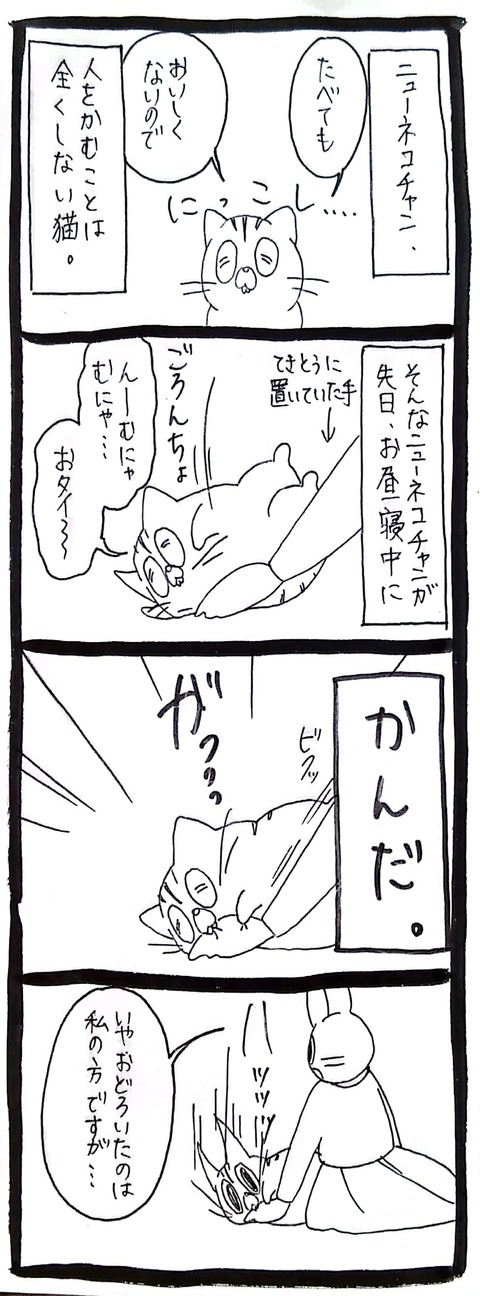 ニューネコチャン、
たべても
おいしく
ないので
にっこし‥‥
人をかむことは
全くしない猫。
そんなニューネコチャンが
先日、お昼寝中に
てきとうに
置いていた手
ごろんちょ
んーむにゃ
むにゃ…
おタイ〜〜
かんだ。
ビクッ
ガブリっ
ハッッッッ
いやおどろいたのは
私の方ですが…